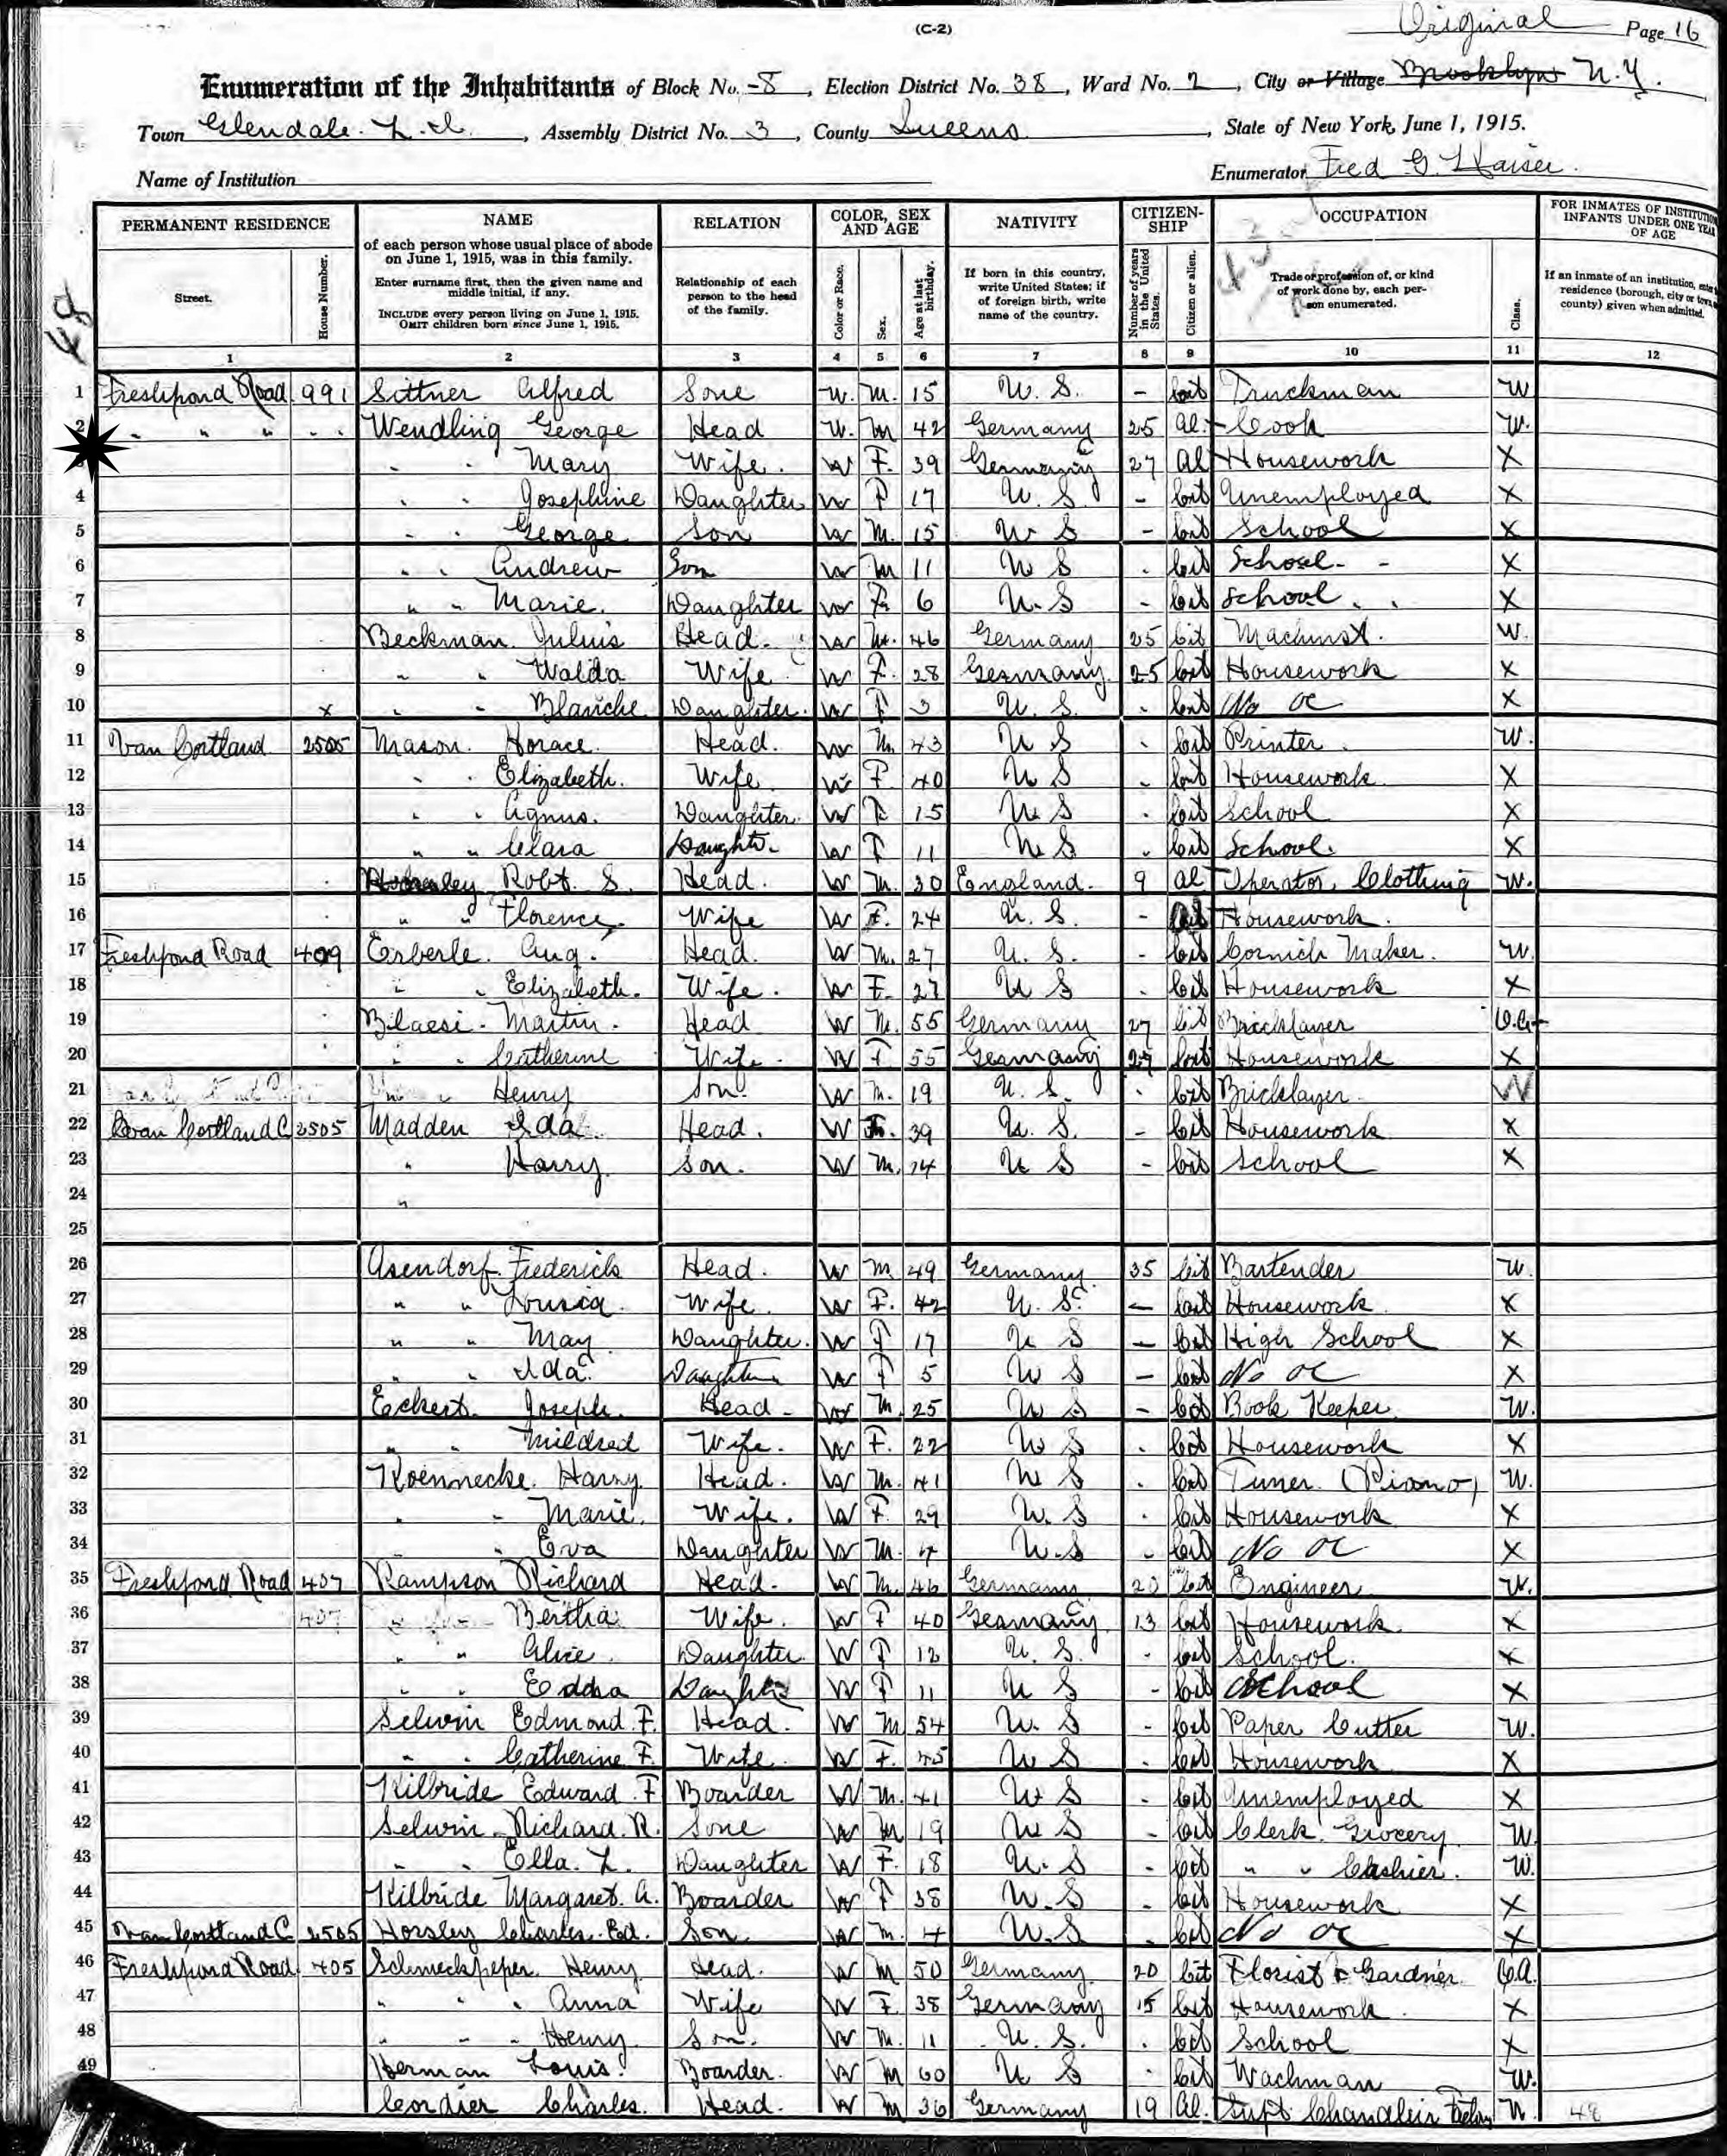 Original Page 16
(C-2)
Enumeration of the Inhabitants of Block No. 8, Election District No. 38, Ward No. 2, City or Village Brooklyn N.Y.
Town Glendale. L.I., Assembly District No. 3, County Queens, State of New York, June 1, 1915.
Name of Institution Enumerator Fred G. Kaiser.
48
PERMANENT RESIDENCE NAME RELATION COLOR, SEX AND AGE NATIVITY CITIZEN-SHIP OCCUPATION FOR INMATES OF INSTITUTIONS INFANTS UNDER ONE YEAR OF AGE
Street. House Number. of each person whose usual place of abode on June 1, 1915, was in this family. Enter surname first, then the given name and middle initial, if any. INCLUDE every person living on June 1, 1915. OMIT children born since June 1, 1915. Relationship of each person to the head of the family. Color or Race. Sex. Age at last birthday. If born in this country, write United States; if of foreign birth, write name of the country. Number of years in the United States. Citizen or alien. Trade or profession of, or kind of work done by, each person enumerated. Class. If an inmate of an institution, enter residence (borough, city or town, county) given when admitted.
1 2 3 4 5 6 7 8 9 10 11 12
1 Freshpond Road 991 Sittner Alfred Sone W. M. 15 U. S. - Cit Truckman W
2 " " " " " Wendling George Head W. M 42 Germany 25 Al. Cook W.
" " Mary Wife. W F. 39 Germany 27 Al Housework X
4 " " Josephine Daughter W F 17 U. S. - Cit Unemployed X
5 " " George Son W M. 15 U S - Cit School X
6 " " Andrew Son W M 11 U S - Cit School - - X
7 " " Marie. Daughter W F. 6 U. S - Cit School X
8 Beckman Julius Head. W M. 46 Germany 25 Cit Machinst. W.
9 " " Walda Wife W F. 28 Germany. 25 Cit Housework X
10 x " " Blanche Daughter. W F 3 U. S. - Cit No oc X
11 Van Cortland 2505 Mason. Horace. Head. W M. 43 U S - Cit Printer. W.
12 " " Elizabeth. Wife W F 40 U S - Cit Housework X
13 " " Agnus. Daughter. W F 15 U S - Cit School X
14 " " Clara Daughtr. W F 11 U S - Cit School. X
15 Robt. S. Head. W M. 30 England. 9 Al Operator, Clothing W.
16 " " Florence Wife W F. 24 U. S. - Housework.
17 Freshpond Road 409 Erberle. Aug. Head. W M. 27 U. S. - Cit Cornich Maker. W.
18 " " Elizabeth. Wife. W F. 27 U S - Cit Housework X
19 Bilaesi. Martin. Head W M. 55 Germany 27 Cit Bricklayer O.A
20 " " Catherine Wife. W F 55 Germany 27 Cit Housework X
21 " Henry Son W M. 19 U. S. - Cit Bricklayer W
22 Van Cortland C 2505 Madden Ida Head. W F. 39 U. S. - Cit Housework X
23 " Harry Son. W M. 14 U S - Cit School X
24 "
25
26 Asendorf Frederick Head. W M 49 Germany 35 Cit Bartender W.
27 " " Lousia. Wife. W F. 42 U. S. - Cit Housework X
28 " " May Daughter. W F 17 U S - Cit High School X
29 " " Ida Daughter W F 5 U S - Cit No oc X
30 Eckert. Joseph. Head - W M. 25 U S - Cit Book Keeper W.
31 " " Mildred Wife. W F. 22 U S - Cit Housework X
32 Koennecke. Harry Head. W M. 41 U S - Cit Tuner. (Piano) W.
33 " " Marie. Wife. W F 29 U. S - Cit Housework X
34 " Eva Daughter W M. 4 U.S - Cit No oc X
35 Freshpond Road 407 Kampson Richard Head. W M. 46 Germany 20 Cit Engineer W.
36 407 " " Bertha Wife. W F 40 Germany 13 Cit Housework X
37 " " Alice Daughter. W F 12 U. S. - Cit School. X
38 " " Edda Daughter W F 11 U S - Cit School X
39 Selwin Edmond F. Head. W M 54 U. S - Cit Paper Cutter W.
40 " " Catherine F. Wife. W F. 45 U S - Cit Housework X
41 Kilbride Edward F Boarder W M. 41 U S - Cit Unemployed X
42 Selwin Richard R. Sone W M 19 U S - Cit Clerk Grocery W
43 " " Ella. L. Daughter W F. 18 U. S - Cit " " Cashier. W.
44 Kilbride Margaret A. Boarder W F 38 U. S - Cit Housework X
45 Van Cortland C 2505 Horsley Charles. Ed. Son W M. 4 U. S - Cit No oc X
46 Freshpond Road 405 Schmeckpeper. Henry Head. W M 50 Germany. 20 Cit Florist & Gardner O.A.
47 " " " Anna Wife W F. 38 Germany 15 Cit Housework X
48 " " " Henry Son. W M. 11 U. S. - Cit School X
49 Herman Louis. Boarder. W M 60 U S - Cit Wachman W.
Cordier Charles. Head. W M 36 Germany 19 Al. Supt Chandleir Factory W. 48